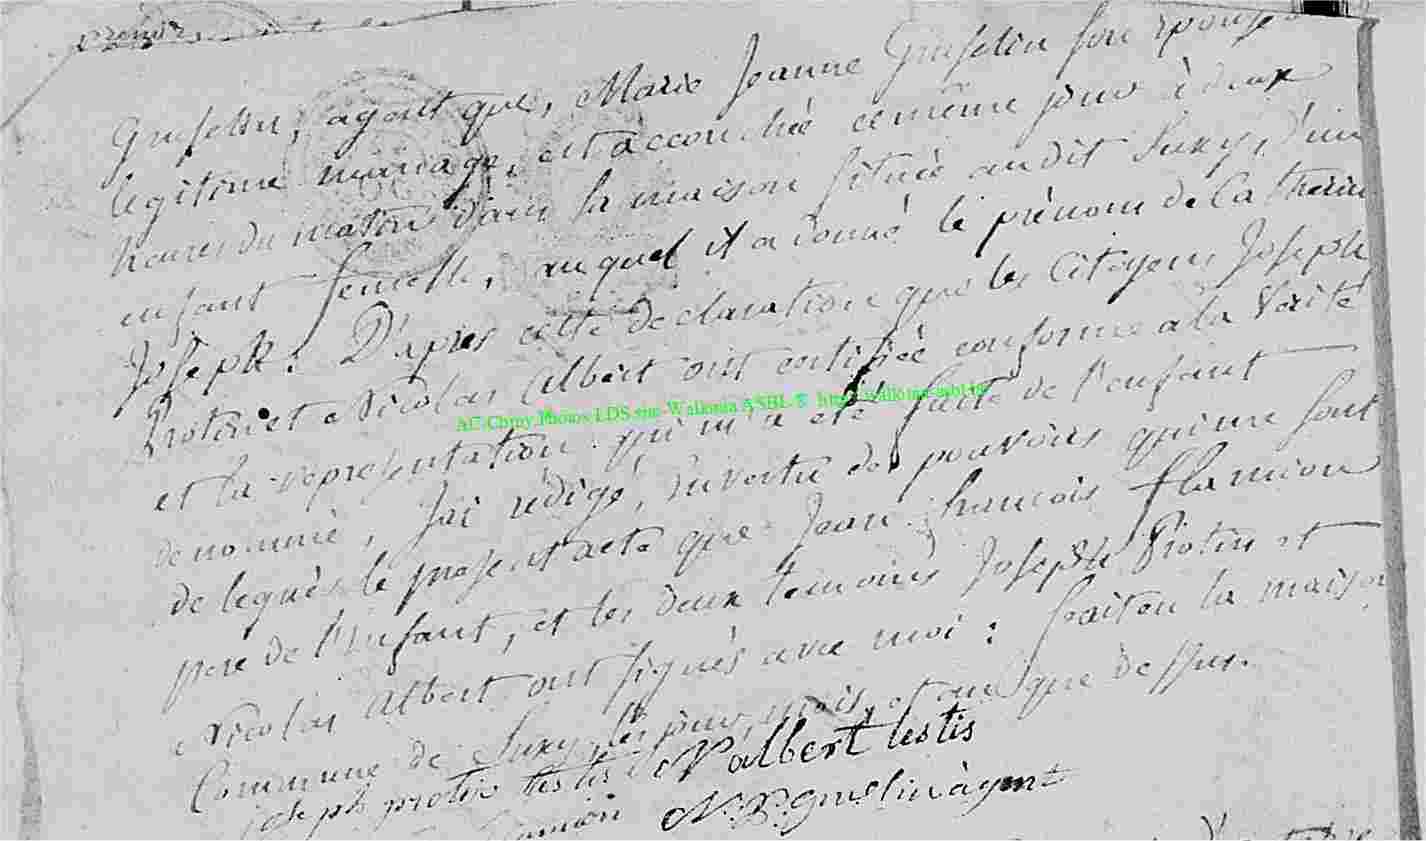 Gruselin, agent que, Marie Jeanne Gruselin son epouse
legitime mariage, est accouchée ce même jour à deux
heures du matin dans sa maison située audit Suxy, d'un
enfant femelle, auquel il a donné le prénom de Catherine
Joseph. D'apres cette declaration que les Citoyens Joseph
Protin et Nicolas Albert ont certifiée conforme a la verité
et la representation qui m'a été faite de l'enfant
denommé, J'ai rédigé, en vertu des pouvoirs qui me sont
delegués le present acte que Jean francois flamion
pere de l'enfant, et les deux temoins Joseph Protin et
Nicolas Albert ont signés avec moi : fait en la maison
Commune de Suxy, les jour, mois, et an que dessus.
joseph protin testis N albert testis
N. B. gruslin àgent
AC Chiny Photos LDS sur Wallonia ASBL © http://wallonia-asbl.be